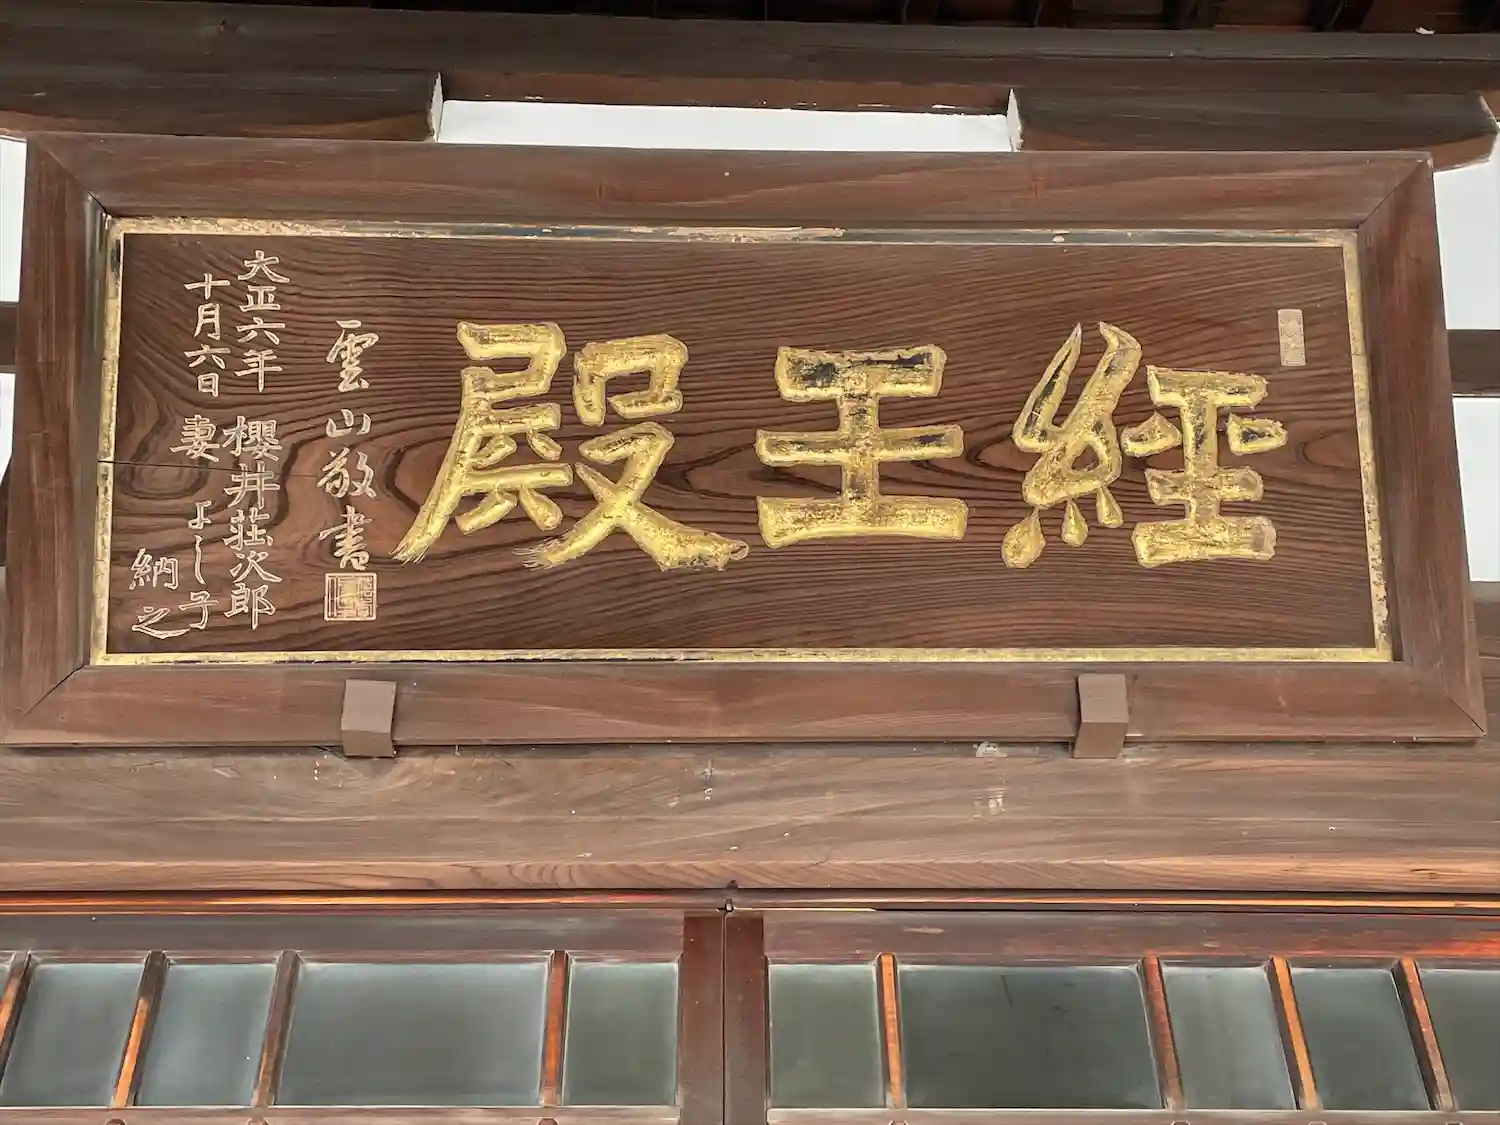 經王殿
雲山敬書
大正六年 櫻井荘次郎
十月六日 妻 よし子
納之